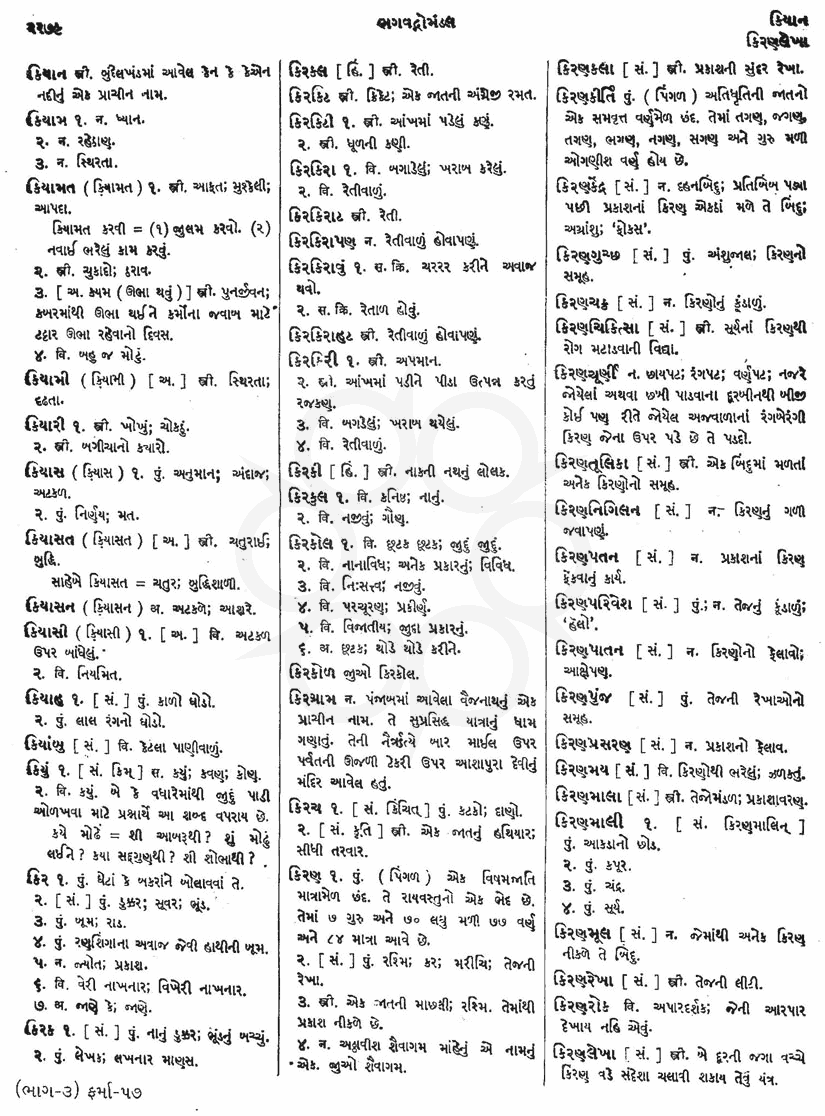 ૨૨૭૯
ભગવદ્ગોમંડલ
કિયાન
કિરણલેખા
કિયાન સ્ત્રી. બુંદેલખંડમાં આવેલ કેન કે કેએન
નદીનું એક પ્રાચીન નામ.
કિયામ ૧. ન. ધ્યાન.
૨. ન. રહેઠાણ.
૩. ન. સ્થિરતા.
કિયામત ( ક઼િયામત ) ૧. સ્ત્રી. આફત; મુશ્કેલી;
આપદા.
કિયામત કરવી = (૧) જુલમ કરવો. (૨)
નવાઈ ભરેલું કામ કરવું.
૨. સ્ત્રી. ચુકાદો; ઠરાવ.
૩. [ અ. ક઼યમ ( ઊભા થવું ) ] સ્ત્રી. પુનર્જીવન;
કબરમાંથી ઊભા થઈને કર્મોના જવાબ માટે
ટટ્ટાર ઊભા રહેવાનો દિવસ.
૪. વિ. બહુ જ મોટું.
કિયામી ( ક઼િયામી ) [ અ. ] સ્ત્રી. સ્થિરતા;
દૃઢતા.
કિયારી ૧. સ્ત્રી. ખોખું; ચોકઠું.
૨. સ્ત્રી. બગીચાનો ક્યારો.
કિયાસ ( ક઼િયાસ ) ૧. પું. અનુમાન; અંદાજ;
અટકળ.
૨. પું. નિર્ણય; મત.
કિયાસત ( ક઼િયાસત ) [ અ. ] સ્ત્રી. ચતુરાઈ;
બુદ્ધિ.
સાહેબે કિયાસત = ચતુર; બુદ્ધિશાળી.
કિયાસન ( ક઼િયાસન ) અ. અટકળે; આશરે.
કિયાસી ( ક઼િયાસી ) ૧. [ અ. ] વિ. અટકળ
ઉપર બાંધેલું.
૨. વિ. નિયમિત.
કિયાહ ૧. [ સં. ] પું. કાળો ઘોડો.
૨. પું. લાલ રંગનો ઘોડો.
કિયાંબુ [ સં. ] વિ. કેટલા પાણીવાળું.
કિયું ૧. [ સં. કિમ્ ] સ. કયું; કવણ; કોણ.
૨. વિ. કયું. બે કે વધારેમાંથી જુદું પાડી
ઓળખવા માટે પ્રશ્નાર્થે આ શબ્દ વપરાય છે.
કયે મોઢે = શી આબરૂથી ? શું મોઢું
લઈને ? કયા સદ્ગુણથી ? શી શોભાથી ?
કિર ૧. પું. ઘેટાં કે બકરાંને બોલાવવાં તે.
૨. [ સં. ] પું. ડુક્કર; સૂવર; ભૂંડ.
૩. પું. બૂમ; રાડ.
૪. પું. રણશિંગાના અવાજ જેવી હાથીની બૂમ.
૫. ન. જ્યોત; પ્રકાશ.
૬. વિ. વેરી નાખનાર; વિખેરી નાખનાર.
૭. અ. જાણે કે; જાણે.
કિરક ૧. [ સં. ] પું. નાનું ડુક્કર; ભૂંડનું બચ્ચું.
૨. પું. લેખક; લખનાર માણસ.
(ભાગ-૩) ફર્મા-૫૭
કિરકલ [ હિં. ] સ્ત્રી. રેતી.
કિરકિટ સ્ત્રી. ક્રિકેટ; એક જાતની અંગ્રેજી રમત.
કિરકિટી ૧. સ્ત્રી. આંખમાં પડેલું કણું.
૨. સ્ત્રી. ધૂળની કણી.
કિરકિરા ૧. વિ. બગાડેલું; ખરાબ કરેલું.
૨. વિ. રેતીવાળું.
કિરકિરાટ સ્ત્રી. રેતી.
કિરકિરાપણ ન. રેતીવાળું હોવાપણું.
કિરકિરાવું ૧. સ. ક્રિ. ચરરર કરીને અવાજ
થવો.
૨. સ. ક્રિ. રેતાળ હોવું.
કિરકિરાહટ સ્ત્રી. રેતીવાળું હોવાપણું.
કિરકિરી ૧. સ્ત્રી. અપમાન.
૨. સ્ત્રી. આંખમાં પડીને પીડા ઉત્પન્ન કરતું
રજકણ.
૩. વિ. બગડેલું; ખરાબ થયેલું.
૪. વિ. રેતીવાળું.
કિરકી [ હિં. ] સ્ત્રી. નાકની નથનું લોલક.
કિરકુલ ૧. વિ. કનિષ્ઠ; નાનું.
૨. વિ. નજીવું; ગૌણ.
કિરકોલ ૧. વિ. છૂટક છૂટક; જુદું જુદું.
૨. વિ. નાનાવિધ; અનેક પ્રકારનું; વિવિધ.
૩. વિ. નિઃસત્ત્વ; નજીવું.
૪. વિ. પરચૂરણ; પ્રકીર્ણ.
૫. વિ. વિજાતીય; જુદા પ્રકારનું.
૬. અ. છૂટક; થોડે થોડે કરીને.
કિરકોળ જુઓ કિરકોલ.
કિરગ્રામ ન. પંજાબમાં આવેલા વૈજનાથનું એક
પ્રાચીન નામ. તે સુપ્રસિદ્ધ યાત્રાનું ધામ
ગણાતું. તેની નૈર્ઋત્યે બાર માઈલ ઉપર
પર્વતની ઊજળી ટેકરી ઉપર આશાપુરા દેવીનું
મંદિર આવેલ હતું.
કિરચ ૧. [ સં. કિંચિત્ ] પું. કટકો; દાણો.
૨. [ સં. કૃતિ ] સ્ત્રી. એક જાતનું હથિયાર;
સીધી તરવાર.
કિરણ ૧. પું. ( પિંગળ ) એક વિષમજાતિ
માત્રામેળ છંદ. તે રાયવસ્તુનો એક ભેદ છે.
તેમાં ૭ ગુરુ અને ૭૦ લઘુ મળી ૭૭ વર્ણ
અને ૮૪ માત્રા આવે છે.
૨. [ સં. ] પું. રશ્મિ; કર; મરીચિ; તેજની
રેખા.
૩. સ્ત્રી. એક જાતની માછલી; રશ્મિ. તેમાંથી
પ્રકાશ નીકળે છે.
૪. ન. અઠ્ઠાવીશ શૈવાગમ માંહેનું એ નામનું
એક. જુઓ શૈવાગમ.
કિરણકલા [ સં. ] સ્ત્રી. પ્રકાશની સુંદર રેખા.
કિરણકીર્તિ પું. ( પિંગળ ) અતિધૃતિની જાતનો
એક સમવૃત્ત વર્ણમેળ છંદ. તેમાં તગણ, જગણ,
તગણ, ભગણ, નગણ, સગણ અને ગુરુ મળી
ઓગણીશ વર્ણ હોય છે.
કિરણકેંદ્ર [ સં. ] ન. દહનબિંદુ; પ્રતિબિંબ પડ્યા
પછી પ્રકાશનાં કિરણ એકઠાં મળે તે બિંદુ;
અત્રાંશુ; ‘ફોકસ’.
કિરણગુચ્છ [ સં. ] પું. અંશુજાલ; કિરણનો
સમૂહ.
કિરણચક્ર [ સં. ] ન. કિરણોનું કૂંડાળું.
કિરણચિકિત્સા [ સં. ] સ્ત્રી. સૂર્યનાં કિરણથી
રોગ મટાડવાની વિદ્યા.
કિરણચૂર્ણી ન. છાયપટ; રંગપટ; વર્ણપટ; નજરે
જોયેલાં અથવા છબી પાડવાના દૂરબીનથી બીજી
કોઈ પણ રીતે જોયેલ અજવાળાનાં રંગબેરંગી
કિરણ જેના ઉપર પડે છે તે પડદો.
કિરણતૂલિકા [ સં. ] સ્ત્રી. એક બિંદુમાં મળતાં
અનેક કિરણોનો સમૂહ.
કિરણનિગિલન [ સં. ] ન. કિરણનું ગળી
જવાપણું.
કિરણપતન [ સં. ] ન. પ્રકાશનાં કિરણ
ફેંકવાનું કાર્ય.
કિરણપરિવેશ [ સં. ] પું.; ન. તેજનું કૂંડાળું;
‘હૅલો’.
કિરણપાતન [ સં. ] ન. કિરણોનો ફેલાવો;
આક્ષેપણ.
કિરણપુંજ [ સં. ] પું. તેજની રેખાઓનો
સમૂહ.
કિરણપ્રસરણ [ સં. ] ન. પ્રકાશનો ફેલાવ.
કિરણમય [ સં. ] વિ. કિરણોથી ભરેલું; ઝળકતું.
કિરણમાલા [ સં. ] સ્ત્રી. તેજોમંડળ; પ્રકાશાવરણ.
કિરણમાલી ૧. [ સં. કિરણમાલિન્ ]
પું. આકડાનો છોડ.
૨. પું. કપૂર.
૩. પું. ચંદ્ર.
૪. પું. સૂર્ય.
કિરણમૂલ [ સં. ] ન. જેમાંથી અનેક કિરણ
નીકળે તે બિંદુ.
કિરણરેખા [ સં. ] સ્ત્રી. તેજની લીટી.
કિરણરોક વિ. અપારદર્શક; જેની આરપાર
દેખાય નહિ એવું.
કિરણલેખા [ સં. ] સ્ત્રી. બે દૂરની જગા વચ્ચે
કિરણ વડે સંદેશા ચલાવી શકાય તેવું યંત્ર.